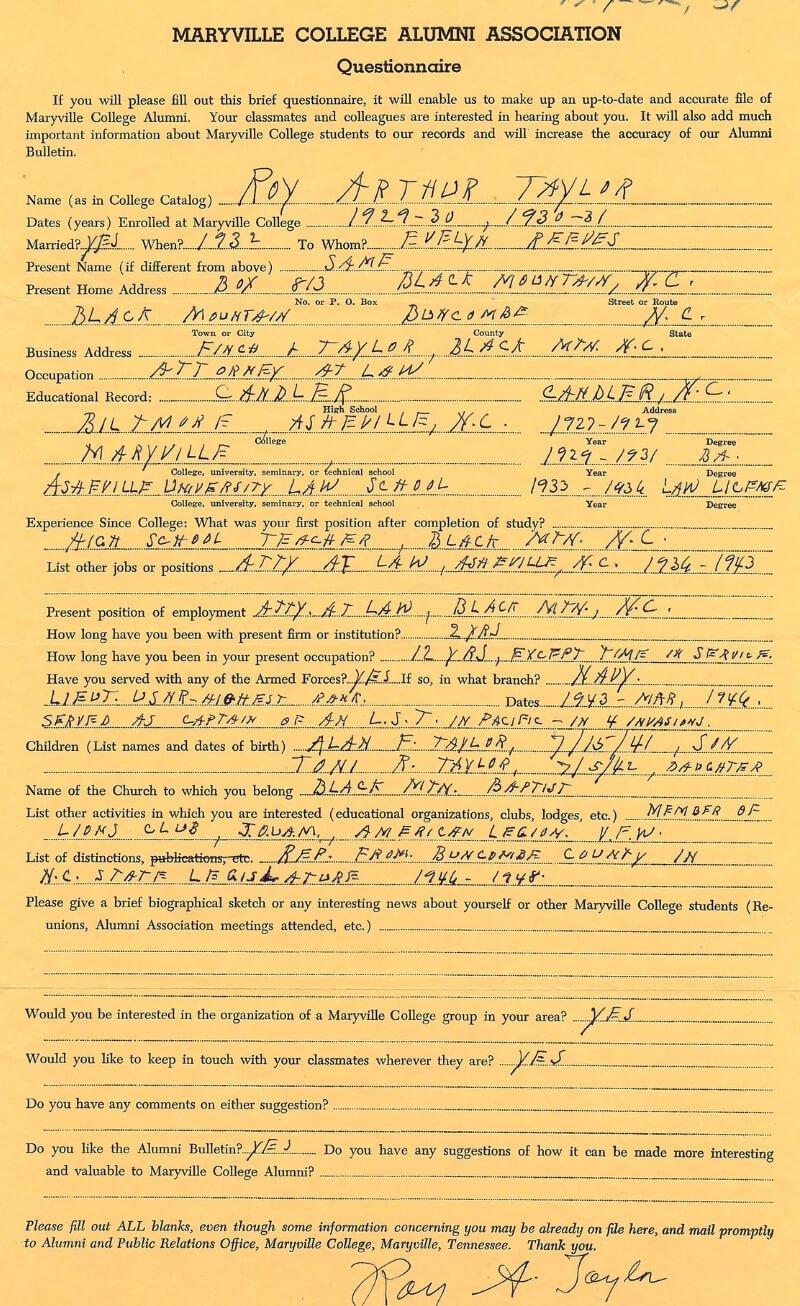 MARYVILLE COLLEGE ALUMNI ASSOCIATION
Questionnaire
If you will please fill out this brief questionnaire, it will enable us to make up an up-to-date and accurate file of
Maryville College Alumni. Your classmates and colleagues are interested in hearing about you. It will also add much
important information about Maryville College students to our records and will increase the accuracy of our Alumni
Bulletin.
Name (as in College Catalog) ROY ARTHUR TAYLOR
Dates (years) Enrolled at Maryville College 1929-30, 1930-31
Married? YES When? 1932 To Whom? EVELYN REEVES
Present Name (if different from above) SAME
Present Home Address BOX 813 BLACK MOUNTAIN, N.C.
No. or P. O. Box Street or Route
BLACK MOUNTAIN BUNCOMBE N.C.
Town or City County State
Business Address FINCH & TAYLOR, BLACK MTN. N.C.
Occupation ATTORNEY AT LAW
Educational Record: CANDLER CANDLER, N.C.
High School Address
BILTMORE, ASHEVILLE, N.C. 1927-1929
College Year Degree
MARYVILLE 1929-1931 BA.
College, university, seminary, or technical school Year Degree
ASHEVILLE UNIVERSITY LAW SCHOOL 1933-1936 LAW LICENSE
College, university, seminary, or technical school Year Degree
Experience Since College: What was your first position after completion of study?
HIGH SCHOOL TEACHER, BLACK MTN. N.C.
List other jobs or positions ATTY AT LAW, ASHEVILLE, N.C. 1936-1943
Present position of employment ATTY. AT LAW, BLACK MTN., N.C.
How long have you been with present firm or institution? 2 YRS
How long have you been in your present occupation? 12 YRS, EXCEPT TIME IN SERVICE.
Have you served with any of the Armed Forces? YES If so, in what branch? NAVY.
LIEUT. USNR-HIGHEST RANK. Dates 1943-MAR, 1946.
SERVED AS CAPTAIN OF AN L.S.T. IN PACIFIC-IN 4 INVASIONS.
Children (List names and dates of birth) ALAN F. TAYLOR, 7/15/41, SON
TONI R. TAYLOR, 7/5/42, DAUGHTER
Name of the Church to which you belong BLACK MTN. BAPTIST
List other activities in which you are interested (educational organizations, clubs, lodges, etc.) MEMBER OF
LIONS CLUB, JOUAM, AMERICAN LEGION. V.F.W.
List of distinctions, publications, etc. REP. FROM BUNCOMBE COUNTY IN
N.C. STATE LEGISLATURE 1946-1948.
Please give a brief biographical sketch or any interesting news about yourself or other Maryville College students (Re-
unions, Alumni Association meetings attended, etc.)
Would you be interested in the organization of a Maryville College group in your area? YES
Would you like to keep in touch with your classmates wherever they are? YES
Do you have any comments on either suggestion?
Do you like the Alumni Bulletin? YES Do you have any suggestions of how it can be made more interesting
and valuable to Maryville College Alumni?
Please fill out ALL blanks, even though some information concerning you may be already on file here, and mail promptly
to Alumni and Public Relations Office, Maryville College, Maryville, Tennessee. Thank you.
Roy A. Taylor